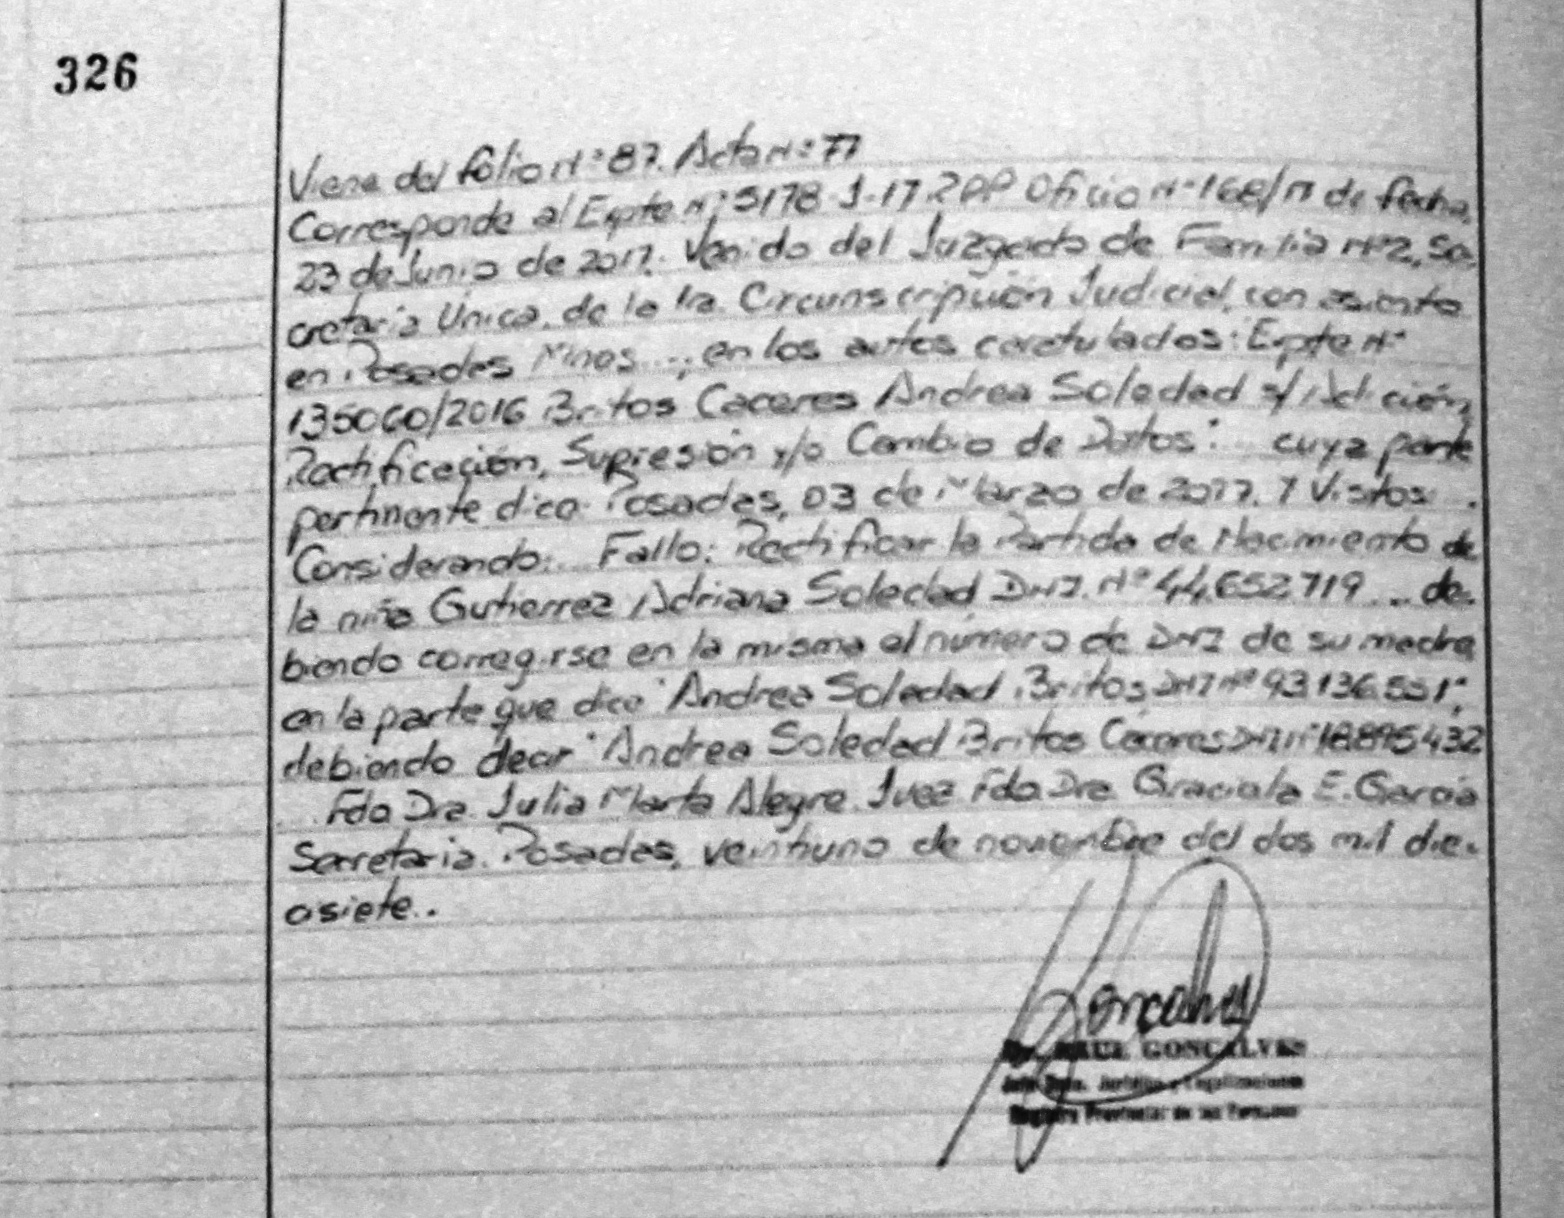 326
Viene del folio Nº 87. Acta Nº 77
Corresponde al Expte Nº 5178-J-17 RPP Oficio Nº 168/17 de fecha
23 de Junio de 2017. Venido del Juzgado de Familia Nº 2, Se-
cretaria Unica, de la 1ra. Circunscripción Judicial, con asiento
en Posadas Mnes..., en los autos caratulados: "Expte Nº
135060/2016 Britos Caceres Andrea Soledad s/ Adición,
Rectificación, Supresión y/o Cambio de Datos". ... cuya parte
pertinente dice: Posadas, 03 de Marzo de 2017. Y Vistos: .
Considerando: ... Fallo: Rectificar la Partida de Nacimiento de
la niña Gutierrez Adriana Soledad DNI. Nº 44.652.719 ... de-
biendo corregirse en la misma el número de DNI de su madre
en la parte que dice "Andrea Soledad Britos DNI Nº 93.136.551",
debiendo decir "Andrea Soledad Britos Cáceres DNI Nº 18895432
... Fdo Dra. Julia Marta Alegre. Juez Fdo Dra Graciela E. García
Secretaria. Posadas, veintiuno de noviembre del dos mil die-
cisiete..
Goncalves
RAUL GONCALVES
Jurídica y Legalizaciones
Registro Provincial de las Personas